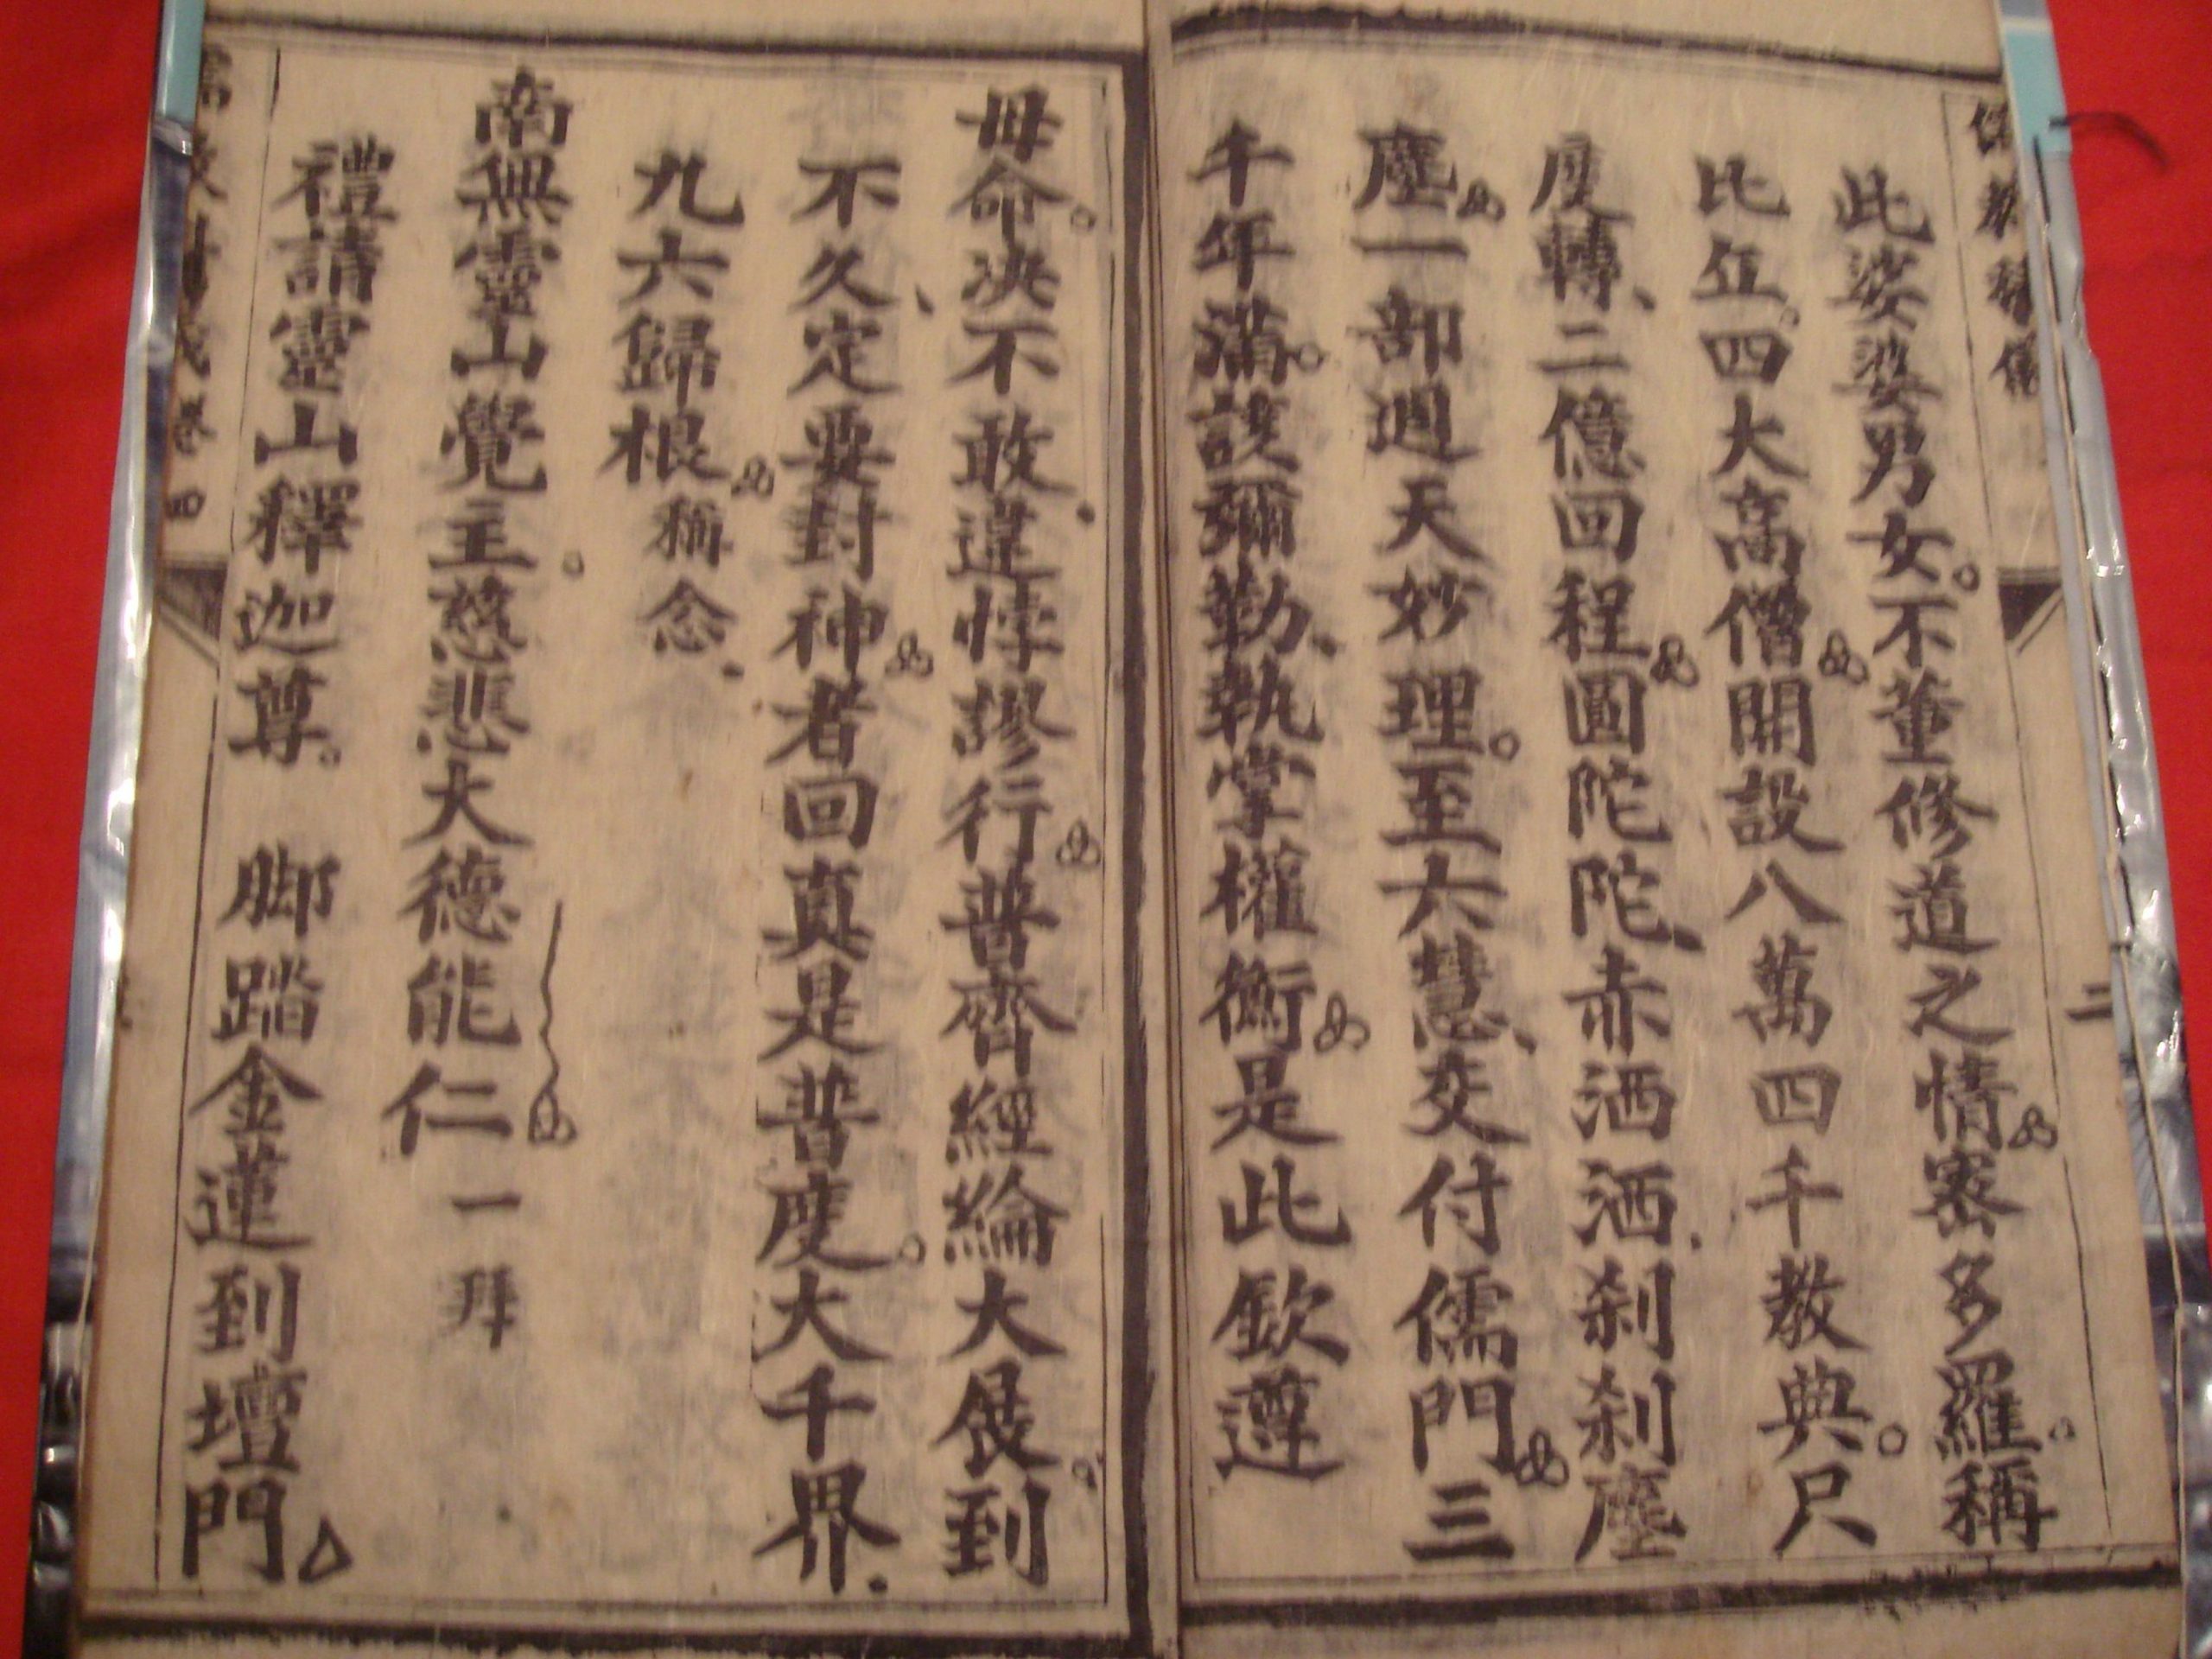 儒教科儀
二
此娑婆男女不董修道之情密多羅稱
比丘四大高僧開設八萬四千教典尺
度轉二億回程圓陀陀赤洒洒刹刹塵
塵一部週天妙理至六慧交付儒門三
千年滿該彌勒執掌權衡是此欽遵
母命決不敢違悖謬行普齊經綸大展到
不久定要封神者回真是普度大千界
九六歸根稱念
南無靈山覺主慈悲大德能仁一拜
禮請靈山釋迦尊 脚踏金蓮到壇門
卷四